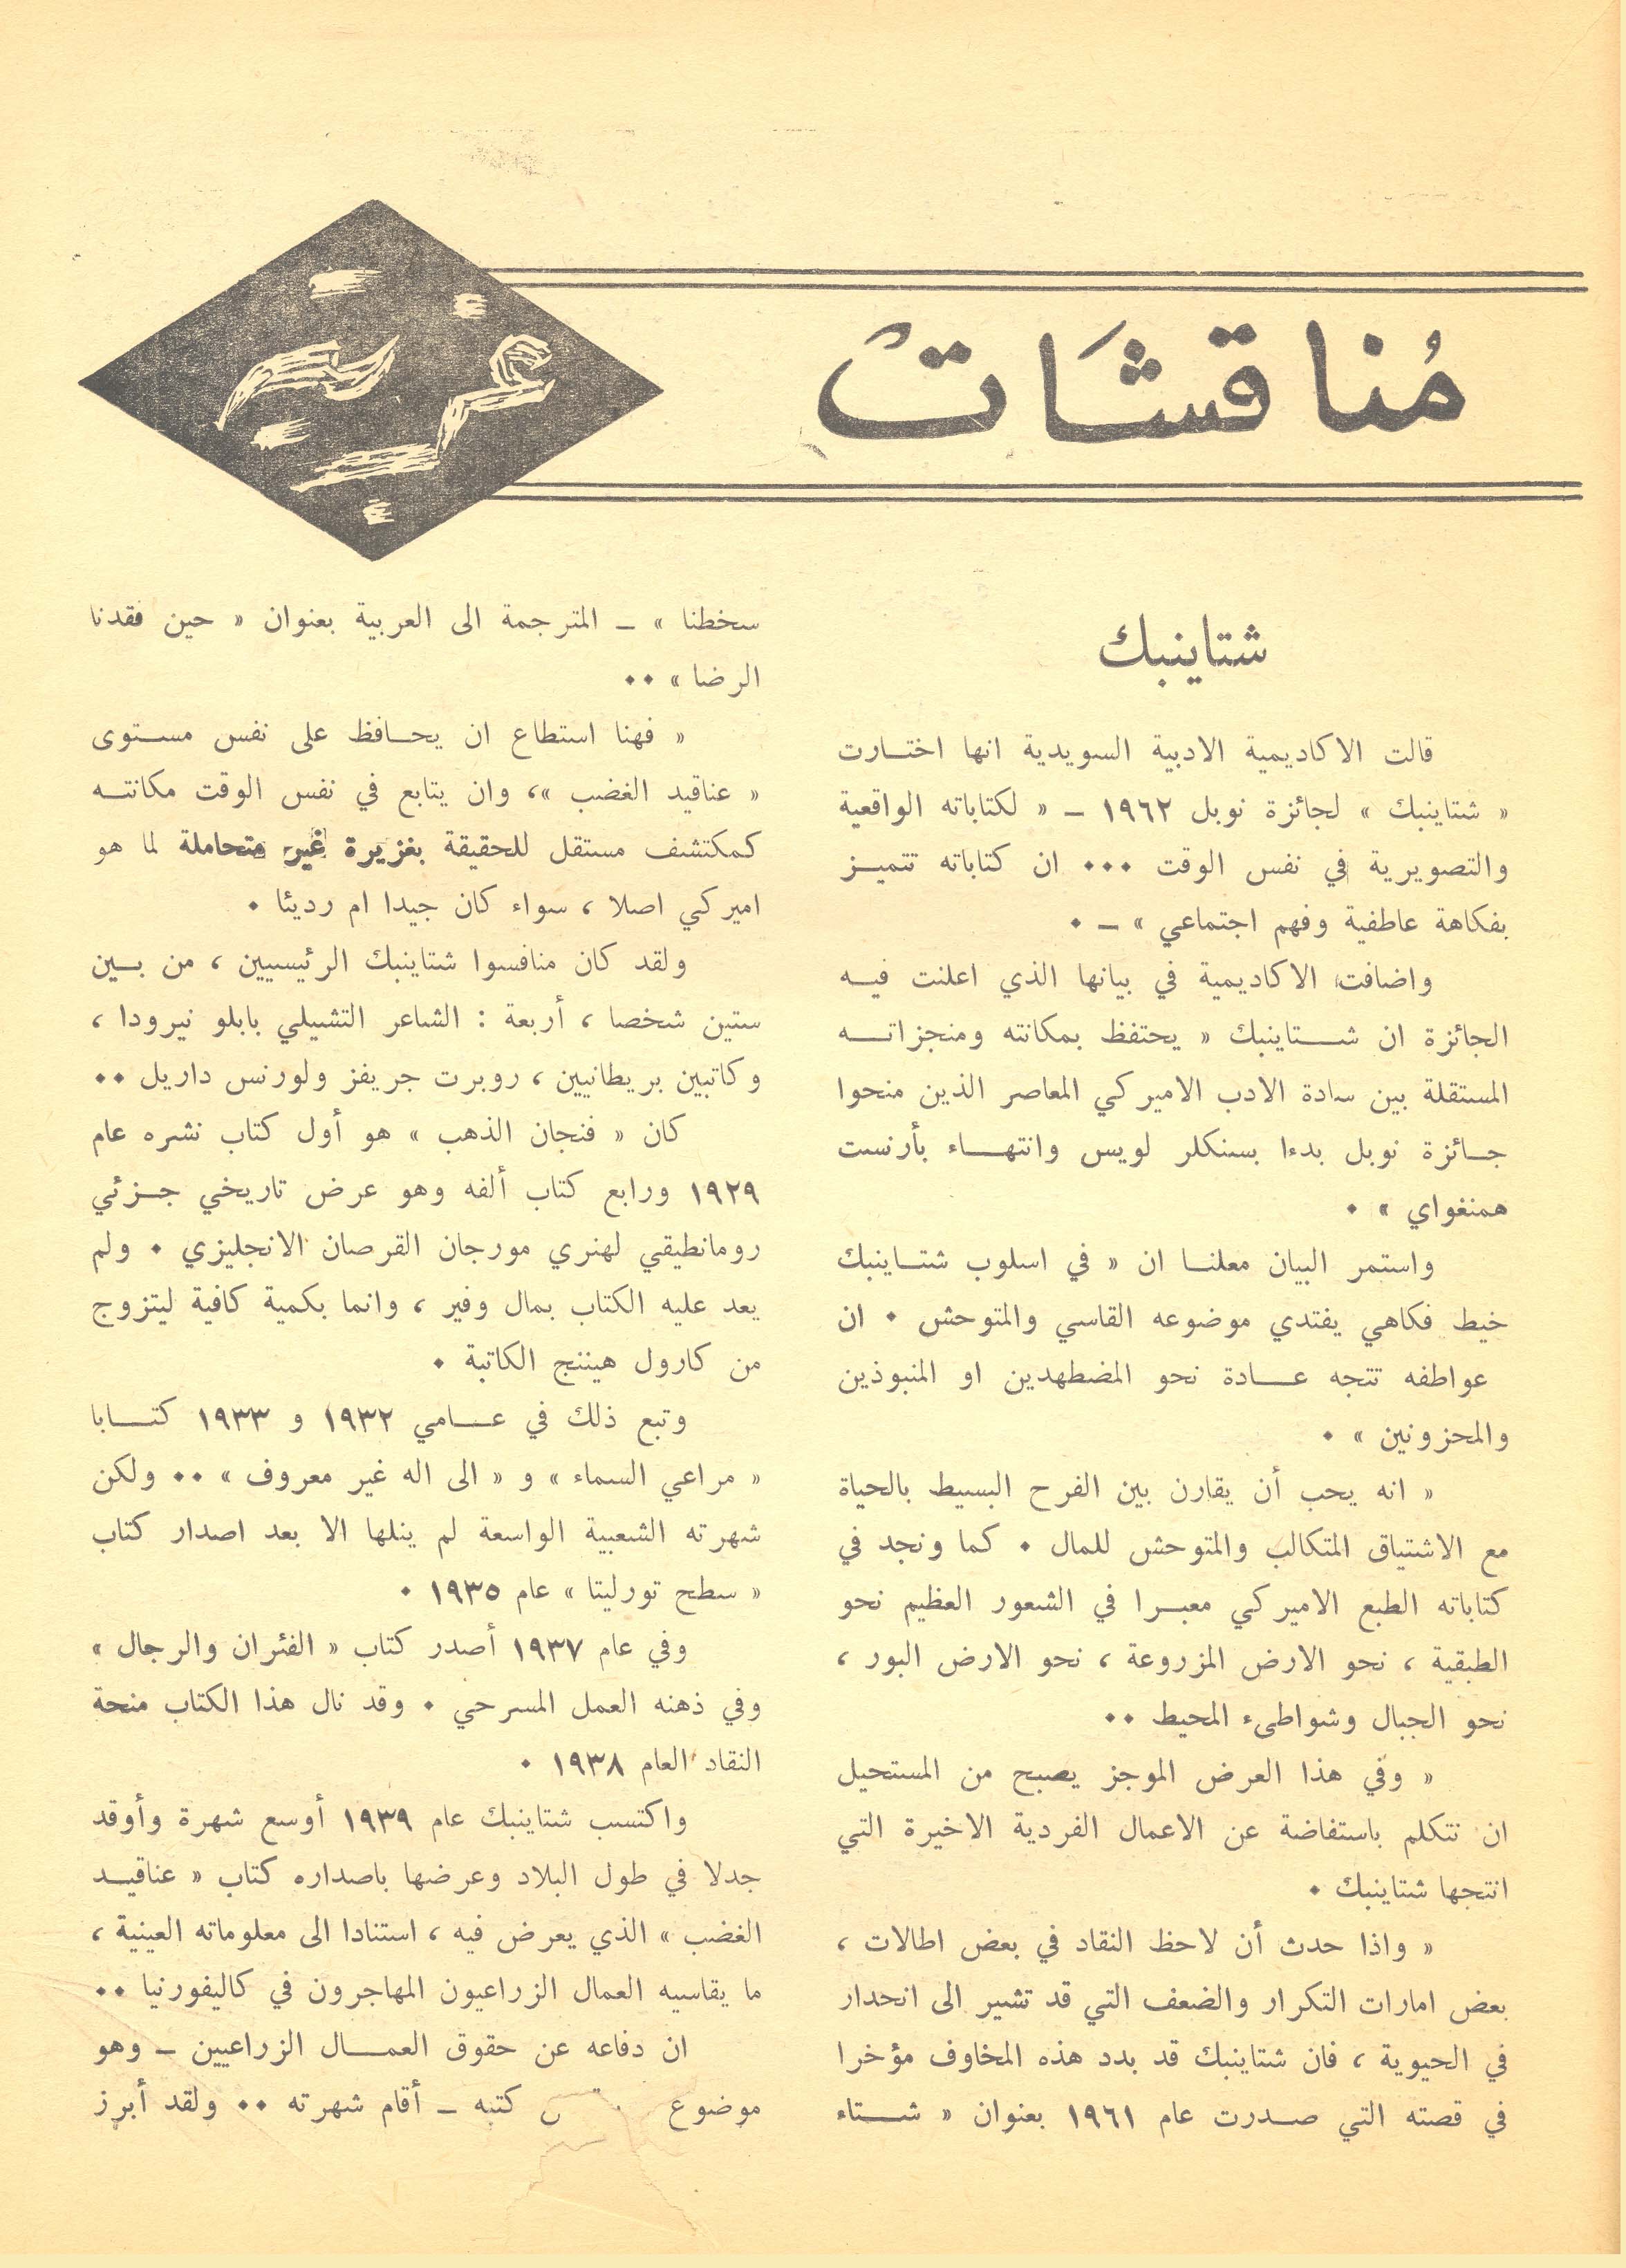 مُناقشَاتْ
شتاينبك
قالت الاكاديمية الادبية السويدية انها اختــارت
« شتاينبك » لجائزة نوبل ١٩٦٢ ـ « لكتاباته الواقعية
والتصويرية في نفس الوقت ٠٠٠ ان كتاباته تتميــز
بفكاهة عاطفية وفهم اجتماعي » ـ ٠
واضافت الاكاديمية في بيانها الذي اعلنت فيــه
الجائزة ان شـــتاينبك « يحتفظ بمكانته ومنجزاتـــه
المستقلة بين سادة الادب الاميركي المعاصر الذين منحوا
جــائزة نوبل بدءا بسنكلر لويس وانتهـــاء بأرنست
همنغواي » ٠
واستمر البيان معلنــا ان « في اسلوب شتــاينبك
خيط فكاهي يفتدي موضوعه القاسي والمتوحش ٠ ان
عواطفه تتجه عـــادة نحو المضطهدين او المنبوذين
والمحزونين » ٠
« انه يحب أن يقارن بين الفرح البسيط بالحياة
مع الاشتياق المتكالب والمتوحش للمال ٠ كما ونجد في
كتاباته الطبع الاميركي معبــرا في الشعور العظيم نحو
الطبقية ، نحو الارض المزروعة ، نحو الارض البور ،
نحو الجبال وشواطىء المحيط ٠٠
« وفي هذا العرض الموجز يصبح من المستحيل
ان نتكلم باستفاضة عن الاعمال الفردية الاخيرة التي
انتجها شتاينبك ٠
« واذا حدث أن لاحظ النقاد في بعض اطالات ،
بعض امارات التكرار والضعف التي قد تشير الى انحدار
في الحيوية ، فان شتاينبك قد بدد هذه المخاوف مؤخرا
في قصته التي صــدرت عام ١٩٦١ بعنوان « شـــتاء
سخطنا » ـ المترجمة الى العربية بعنوان « حين فقدنا
الرضا » ٠٠
« فهنا استطاع ان يحــافظ على نفس مســتوى
« عناقيد الغضب »، وان يتابع في نفس الوقت مكانتــه
كمكتشف مستقل للحقيقة بغزيرة غير متحاملة لما هو
اميركي اصلا ، سواء كان جيدا ام رديئا ٠
ولقد كان منافسوا شتاينبك الرئيسيين ، من بــين
ستين شخصا ، أربعة : الشاعر التشيلي بابلو نيرودا ،
وكاتبين بريطانيين ، روبرت جريفز ولورنس داريل ٠٠
كان « فنجان الذهب » هو أول كتاب نشره عام
١٩٢٩ ورابع كتاب ألفه وهو عرض تاريخي جــزئي
رومانطيقي لهنري مورجان القرصان الانجليزي ٠ ولم
يعد عليه الكتاب بمال وفير ، وانما بكمية كافية ليتزوج
من كارول هيننج الكاتبة ٠
وتبع ذلك في عـــامي ١٩٣٢ و ١٩٣٣ كتـــابا
« مراعي السماء » و « الى اله غير معروف » ٠٠ ولكن
شهرته الشعبية الواسعة لم ينلها الا بعد اصدار كتاب
« سطح تورليتا » عام ١٩٣٥ ٠
وفي عام ١٩٣٧ أصدر كتاب « الفئران والرجال »
وفي ذهنه العمل المسرحي ٠ وقد نال هذا الكتاب منحة
النقاد العام ١٩٣٨ ٠
واكتسب شتاينبك عام ١٩٣٩ أوسع شهرة وأوقد
جدلا في طول البلاد وعرضها باصداره كتاب « عناقيــد
الغضب » الذي يعرض فيه ، استنادا الى معلوماته العينية ،
ما يقاسيه العمال الزراعيون المهاجرون في كاليفورنيا ٠٠
ان دفاعه عن حقوق العمـــال الزراعيين ـ وهو
موضوع كتبه ـ أقام شهرته ٠٠ ولقد أبرز